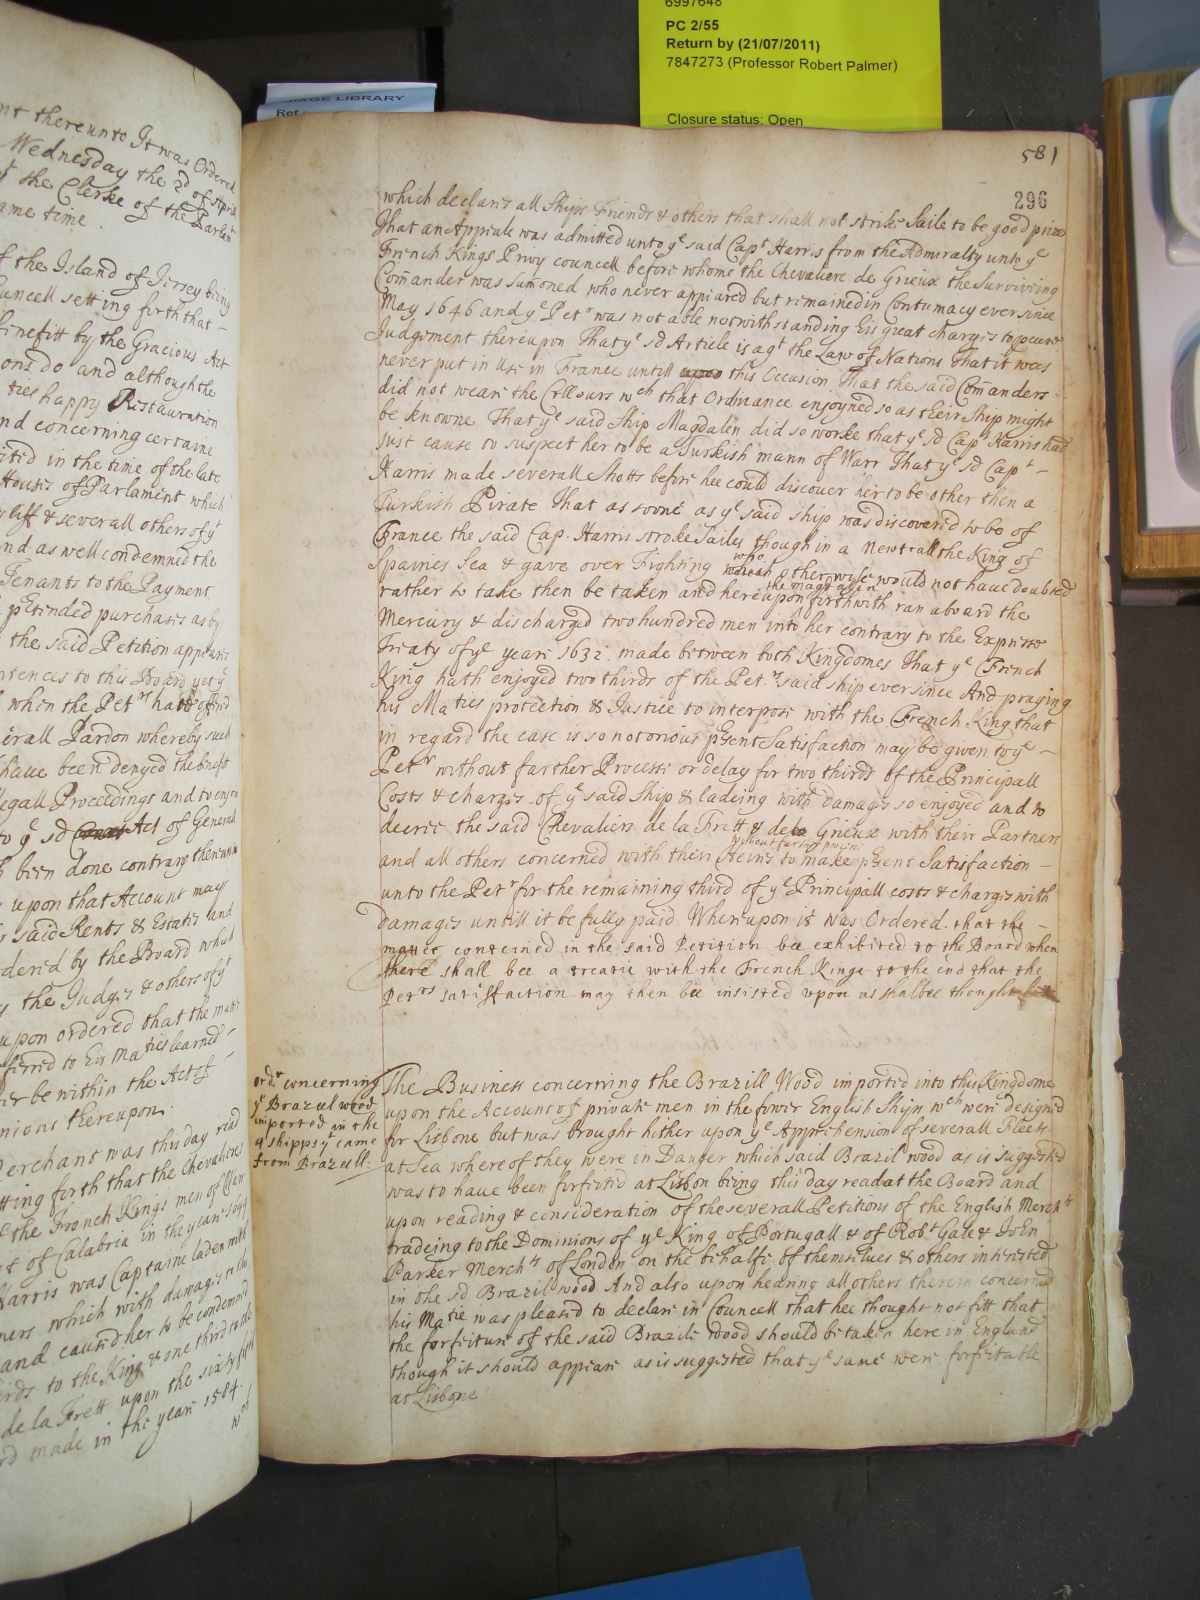 6997648
PC 2/55
Return by (21/07/2011)
7847273 (Professor Robert Palmer)
Closure status: Open
IMAGE LIBRARY
Ref
nt thereunto It was Ordered
Wednesday the 2d of April
the Clerke of the Parlamt
ame time.
f the Island of Jersey being
Councell setting forth that
benefitt by the Gracious Act
ons do and although the
ties happy Restauration
nd concerning certaine
ited in the time of the late
Houses of Parlament which
liff & severall others of yt
nd as well condemned the
Tenants to the Payment
ptended purchases as by
the said Petition appeares
ntences to this Board yet ye
when the Petrs have offerd
erall Pardon whereby such
have been denyed the benefit
legall Proceedings and to enjoy
to ye sd Act of Generall
been done contrary thereunto
upon that Account may
said Rents & Estates and
dered by the Board what
the Judges & others of yt
upon ordered that the matter
ferred to his Maties learned
er be within the Act of
nions thereupon.
Merchant was this day read
tting forth that the Chevaliers
the French Kings men of Warr
of Calabria in the yeare 1645
Harris was Captaine laden with
ners which with damages to the
and caused her to be condemned
irds to the King & one third to the
de la Frett upon the sixty first
made in the yeare 1584.
wch
581
296
which declares all Ships Friends & others that shall not strike Saile to be good prize
That an Appeale was admitted unto ye said Capt Harris from the Admiralty unto ye
French Kings Privy councell before whome the Chevaliere de Grieux the Surviveing
Com̄ander was sum̄oned who never appeared but remained in Contumacy ever since
May 1646 and ye Petr was not able notwithstanding his great charges to pcure
Judgement thereupon That ye sd Article is agt the Law of Nations That it was
never put in use in France untill upon this Occasion That the said Com̄anders
did not weare the Collours wch that Ordinance enjoyned so as their Ship might
be knowne That ye said Ship Magdalen did so worke that ye sd Capt Harris had
just cause to suspect her to be a Turkish mann of Warr That ye sd Capt -
Harris made severall Shotts before hee could discover her to be other then a
Turkish Pirate That as soone as ye said ship was discovered to be of
France the said Cap. Harris stroke Sailes though in a Newtrall the King of
Spaines Sea & gave over Fighting which who otherwyse would not have doubted
rather to take then be taken and hereupon the Magdalen forthwith ran aboard the
Mercury & discharged two hundred men into her contrary to the Expresse
Treaty of ye yeare 1632 made between both Kingdomes That ye French
King hath enjoyed two thirds of the Petrs said ship ever since And praying
his Maties protection & Justice to interpose with the French King that
in regard the case is so notorious psent Satisfaction may be given to ye -
Petr without farther Processe or delay for two thirds of the Principall
Costs & charges of ye said Ship & ladeing with damages so enjoyed and to
decree the said Chevaliers de la Frett & de la Grieux with their Partners
and all others concerned with their Heires without further process to make psent Satisfaction -
unto the Petr for the remaining third of ye Principall costs & charges with
damages untill it be fully paid Whereupon it was Ordered that the -
matter conteined in the said Petition bee exhibited to the Board when
there shall bee a treatie with the French Kinge to the end that the
Petrs satisffaction may then bee insisted upon as shalbee thought fitt
ordr concerning
ye Brazeel wood
imported in the
4 shipps yt came
from Brazeell:
The Business concerning the Brazill Wood imported into this Kingdome
upon the Account of private men in the fower English Ships wch were designed
for Lisbone but was brought hither upon ye Apprehension of severall Fleets
at Sea whereof they were in Danger which said Brazil wood as is suggested
was to have been forfeited at Lisbon being this day read at the Board and
upon reading & consideration of the severall Petitions of the English Merchts
tradeing to the Dominions of ye King of Portugall & of Robt Gale & John
Parker Merchts of London on the behalfe of themselves & others interested
in the sd Brazil wood And also upon hearing all others therein concerned
his Matie was pleased to declare in Councell that hee thought not fitt that
the forfeiture of the said Brazile wood should be taken here in England
though it should appeare as is suggested that ye same were forfeitable
at Lisbone